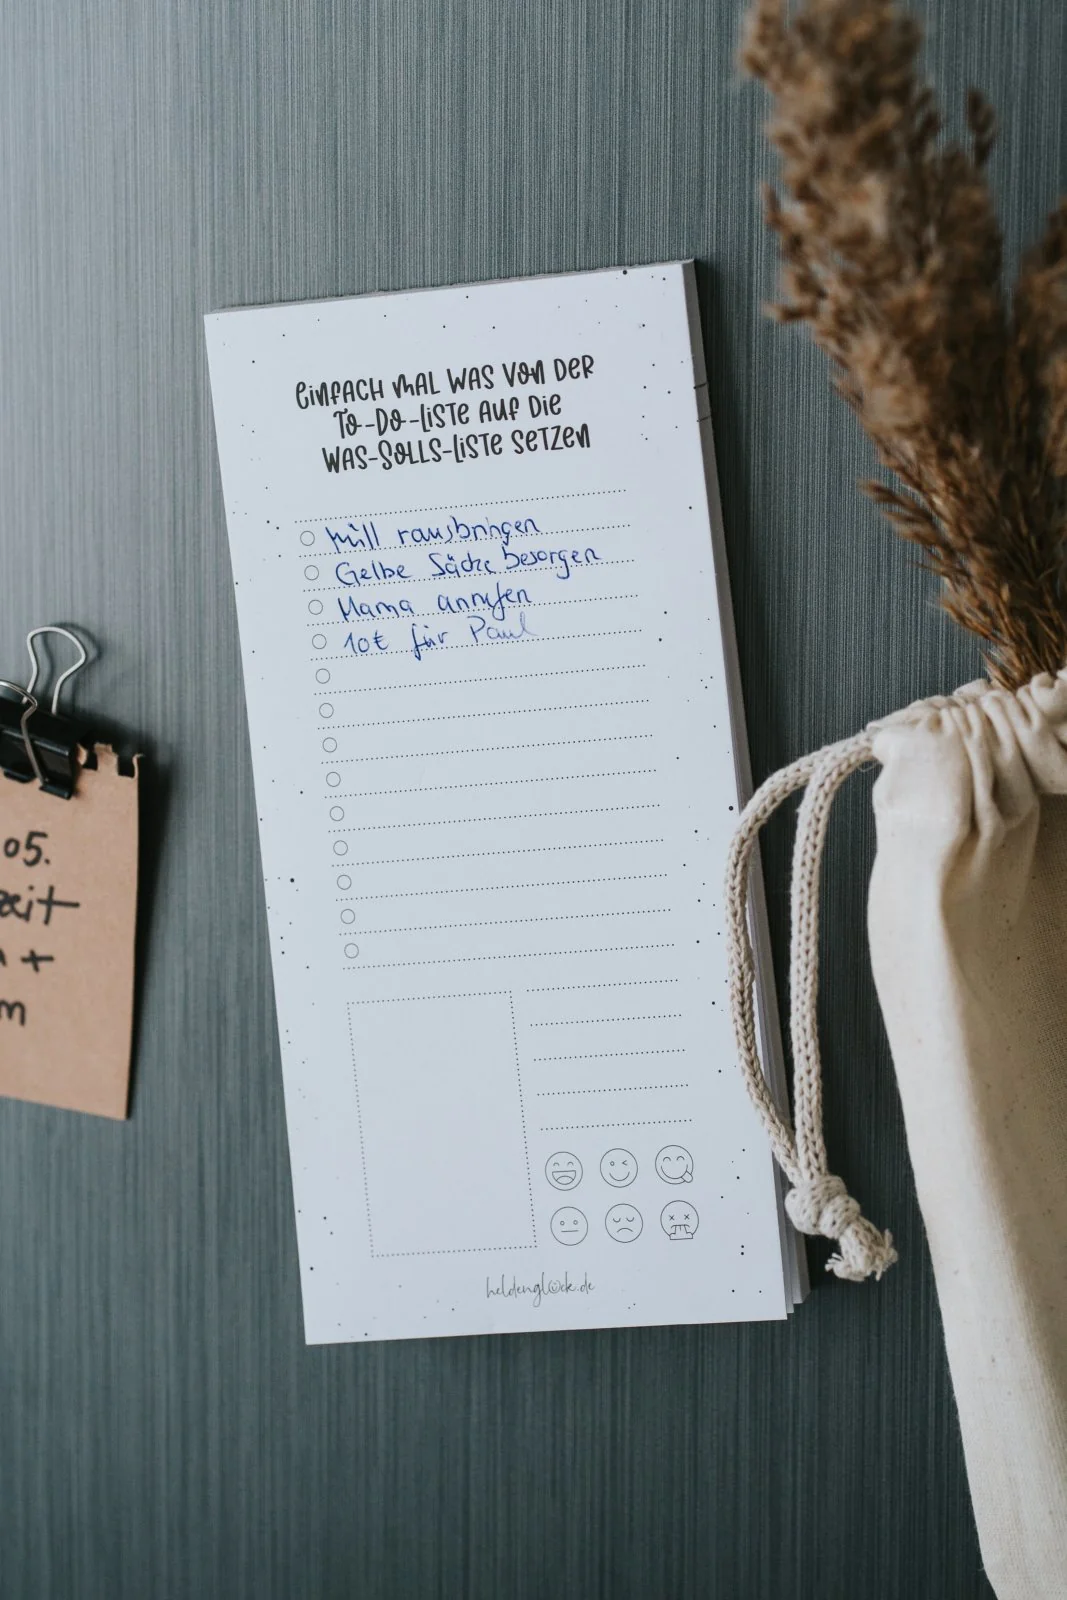 einfach mal was von der
To-Do-Liste auf die
Was-Solls-Liste setzen
Müll rausbringen
Gelbe Säcke besorgen
Mama anrufen
10€ für Paul
heldenglück.de
05.
zeit
+
m